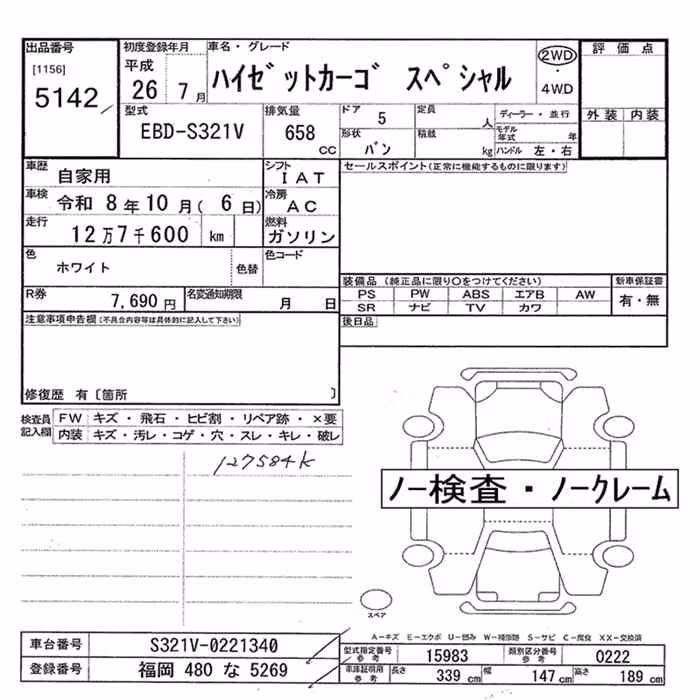 出品番号
[1156]
5142
初度登録年月
平成
26 7月
車名・グレード
ハイゼットカーゴ スペシャル
2WD
・
4WD
評価点
外装 内装
型式
EBD-S321V
排気量
658
CC
ドア 5
形状 バン
定員 人
積載 kg
ディーラー・並行
モデル年式 年
ハンドル 左・右
車歴
自家用
シフト
IAT
セールスポイント(正常に機能するものに限ります)
車検
令和 8年10月( 6日)
冷房
AC
走行
12万7千600 km
燃料
ガソリン
色
ホワイト
色替
色コード
R券
7,690円
名変通知期限
月 日
装備品(純正品に限り○をつけてください)
PS PW ABS エアB AW
SR ナビ TV カワ
新車保証書
有・無
後日品
注意事項申告欄(不具合内容等は具体的に記入して下さい)
修復歴 有〔箇所 〕
検査員記入欄
FW キズ・飛石・ヒビ割・リペア跡・×要
内装 キズ・汚レ・コゲ・穴・スレ・キレ・破レ
127584K
ノー検査・ノークレーム
スペア
A-キズ E-エクボ U-凹み W-補修跡 S-サビ C-腐食 XX-交換済
車台番号 S321V-0221340
登録番号 福岡 480 な 5269
型式指定番号参考 15983 類別区分番号参考 0222
車庫証明用参考 長さ 339 cm 幅 147 cm 高さ 189 cm